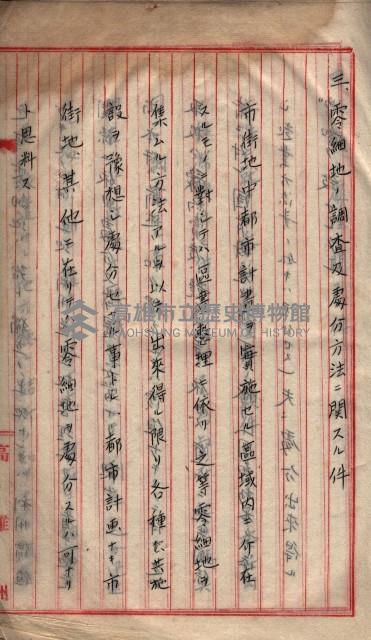 三、零細地ノ調査及處分方法ニ関スル件
市街地中都市計畫ヲ實施セル區域内ニ介在
スルモノニ對シテハ區畫整理ニ依リ之等零細地ヲ
集ムル方法アルヲ以テ出來得ル限リ各種公共施
設ヲ豫想シ處分セザル事トシ都市計画ナキ市
街地其ノ他ニ在リテハ零細地ヲ處分スルハ可ナリ
ト思料ス
高雄州
高雄市立歷史博物館
KAOHSIUNG MUSEUM OF HISTORY